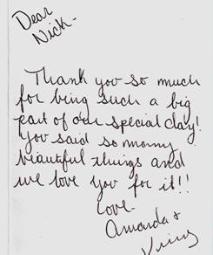 Dear
Nick-
Thank you so much
for being such a big
part of our special day!
You said so many
beautiful things and
we love you for it!!
Love
Amanda +